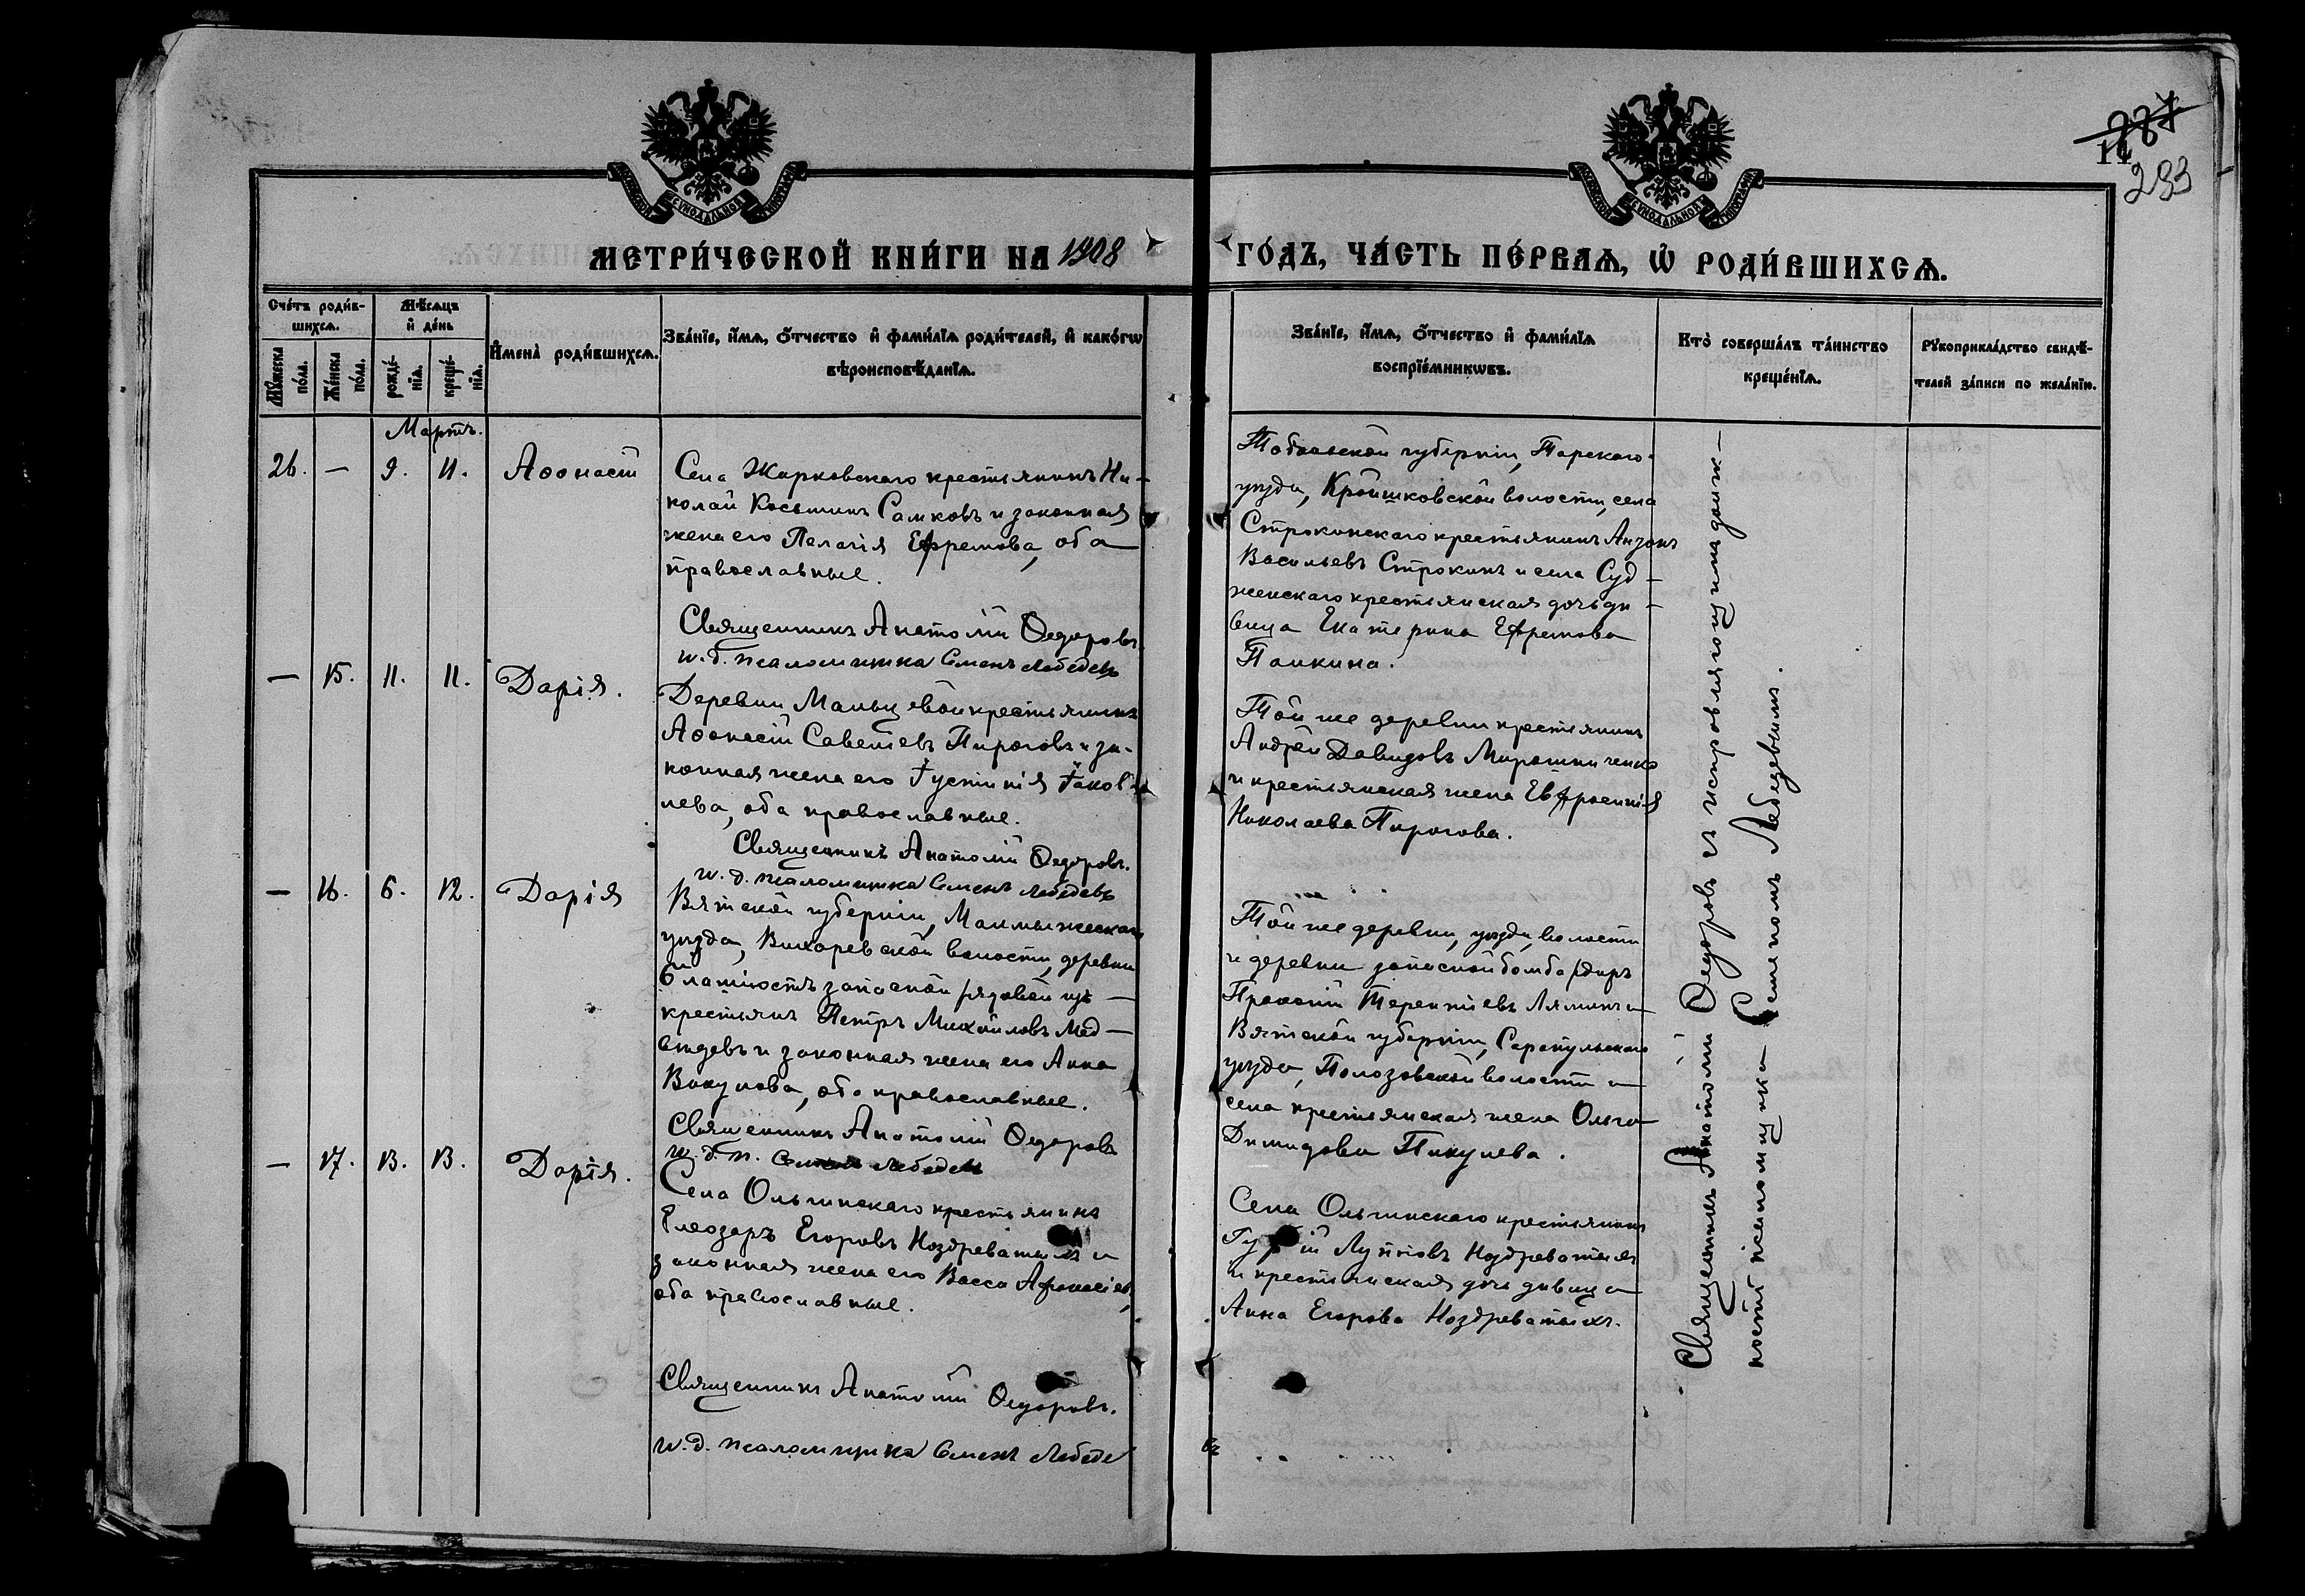 287
14
293
МЕТРИ́ЧЕСКОЙ КНИ́ГИ НА 1908
ГО́ДЪ, ЧА́СТЬ ПЕ́РВАѦ, Ѡ РОДИ́ВШИХСѦ.
Сче́тъ роди́в-
шихсѧ.
Мѣ́сѧцъ
и҆ де́нь
Мꙋ́жеска по́ла.
Же́нска по́ла.
рожде́-
нїѧ.
креще́-
нїѧ.
И҆мена̀ роди́вшихсѧ.
Зва́нїе, и҆́мѧ, ѻ҆́тчество и҆ фами́лїѧ роди́телей, и҆ како́гѡ
вѣроисповѣ́данїѧ.
Зва́нїе, и҆́мѧ, ѻ҆́тчество и҆ фами́лїѧ
воспрїе́мникѡвъ.
Кто̀ соверша́лъ та́инство
креще́нїѧ.
Рꙋкоприкла́дство свидѣ́-
телей за́писи по жела́нїю.
Мартъ.
26. — 9. 11. Аѳонасій
Села Жарковскаго крестьянинъ Ни-
колай Косьминъ Самковъ и законная
жена его Пелагія Ефремова, оба
православные.
Священникъ Анатолій Ѳедоровъ
и.д. псаломщика Семенъ Лебедевъ
Тобольской губерніи, Тарскаго
уѣзда, Крайшковской волости, села
Строкинскаго крестьянинъ
Васильевъ Строкинъ и села Суд-
женскаго крестьянская дочь дѣ-
вица Екатерина Ефремова
Панкина.
— 15. 11. 11. Дарія.
Деревни Мальцевой крестьянинъ
Аѳонасій Савельевъ Пироговъ и за-
конная жена его Іустинія Іаков-
лева, оба православные.
Священникъ Анатолій Ѳедоровъ.
и.д. псаломщика Семенъ Лебедевъ
Той же деревни крестьянинъ
Андрей Давидовъ Мирошниченко
и крестьянская жена Евфросинія
Николаева Пирогова.
— 16. 6. 12. Дарія
Вятской губерніи, Малмыжскаго
уѣзда, Вихаревской волости, деревни
запасной рядовой изъ
крестьянъ Петръ Михайловъ Мед-
вѣдевъ и законная жена его Анна
Вакулова, оба православные.
Священникъ Анатолій Ѳедоровъ
и.д.п. Семенъ Лебедевъ
Той же деревни, уѣзда, волости
и деревни запасной бомбардиръ
Прокопій Терентіевъ Ляминъ и
Вятской губерніи, Сарапульскаго
уѣзда, Полозовской волости и
села крестьянская жена Ольга
Димидова Пикулева.
— 17. 13. 13. Дарія.
Села Ольгинскаго крестьянинъ
Елеозаръ Егоровъ Ноздреватыхъ и
законная жена его Васса Афонасіева,
оба православные.
Священникъ Анатолій Ѳедоровъ.
и.д. псаломщика Семенъ Лебеде
Села Ольгинскаго крестьянинъ
Гурій Лупповъ Ноздреватыхъ
и крестьянская дочь дѣвица
Анна Егорова Ноздреватыхъ.
Священникъ Анатолій Ѳедоровъ съ исправляющимъ долж-
ность псаломщика Семеномъ Лебедевымъ.